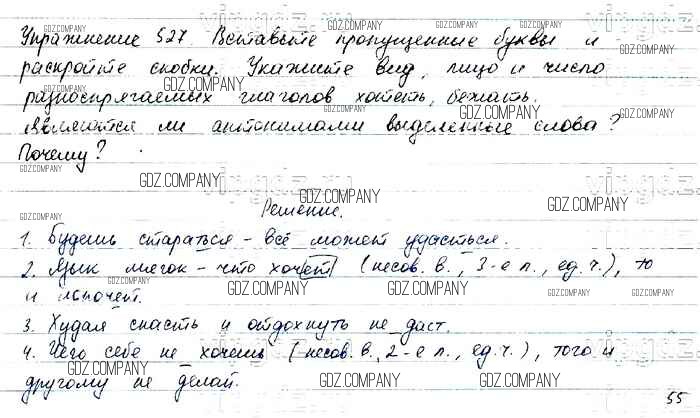 Упражнение 527. Вставьте пропущенные буквы и
раскройте скобки. Укажите вид, лицо и число
разноспрягаемых глаголов хотеть, бежать.
Являются ли антонимами выделенные слова?
Почему?
Решение.
1. Будешь стараться – всё может удасться.
2. Язык мягок – что хочет (несов. в., 3-е л., ед. ч.), то
и лопочет.
3. Худая снасть и отдохнуть не даст.
4. Чего себе не хочешь (несов. в., 2-е л., ед. ч.), того и
другому не делай.
55
GDZ.COMPANY